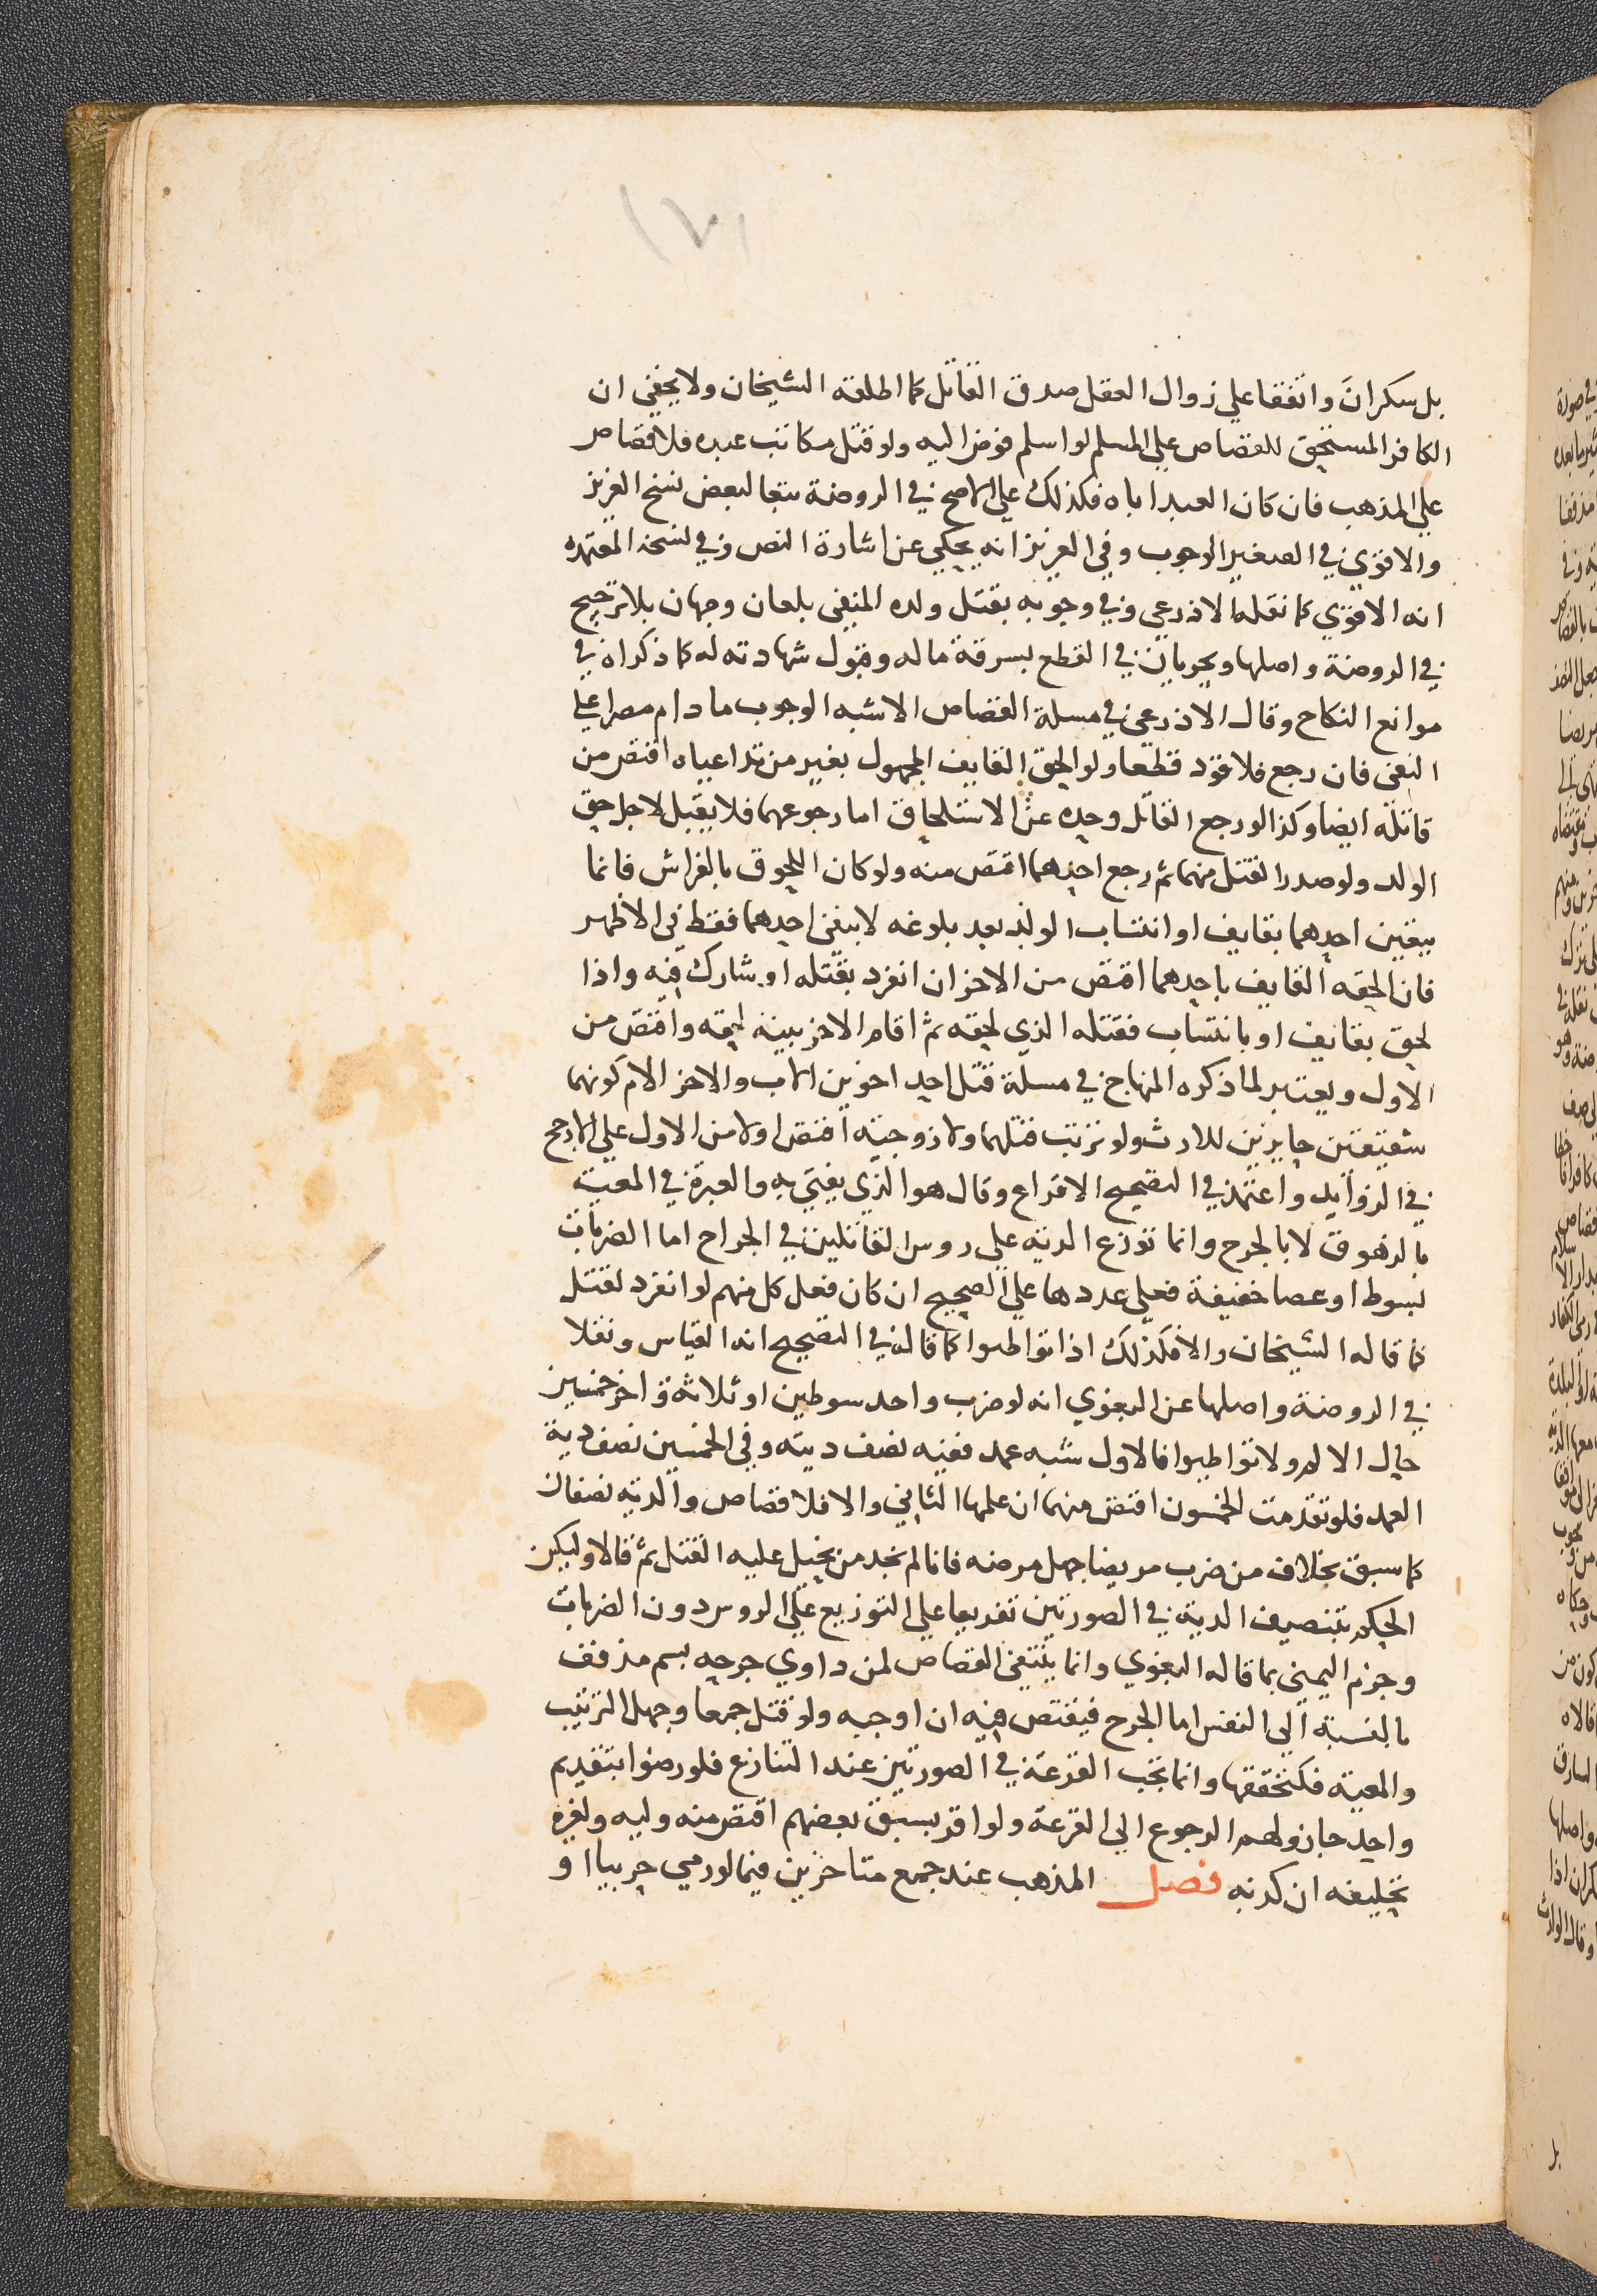 بل سكران واتفقا علي زوال العقل صدق القاتل كما اطلقه الشيخان ولا يخفي ان
الكافر المستحق للقصاص علي المسلم لو اسلم فوض اليه ولو قتل مكاتب عبده فلا قصاص
علي المذهب فان كان العبد اباه فكذلك علي الاصح في الروضة تبعا لبعض نسخ العزيز
والاقوي في الصغير الوجوب وفي العزيز انه يحكي عن اشارة النص وفي نسخه المعتمده
انه الاقوي كما نقله الاذرعي وفي وجوبه بقتل ولده المنفي بلعان وجهان بلا ترجيح
في الروضة واصلها ويجريان في القطع بسرقة ماله وقبول شهادته له كما ذكراه في
موانع النكاح وقال الاذرعي في مسلة القصاص الاشبه الوجوب ما دام مصرا علي
النفي فان رجع فلا قود قطعا ولو الحق القايف المجهول بغير من تداعياه اقتص من
قاتله ايضا وكذا لو رجع القاتل وحده عن الاستلحاق اما رجوعهما فلا يقبل لاجل حق
الولد ولو صدر القتل منهما ثم رجع احدهما اقتص منه ولو كان اللحوق بالفراش فانما
يتعين احدهما بقايف او انتساب الولد بعد بلوغه لا بنفي احدهما فقط في الاظهر
فان الحقه القايف باحدهما اقتص من الاخر ان انفرد بقتله او شارك فيه واذا
لحق بقايف او بانتساب فقتله الذي لحقه ثم اقام الاخر بينة لحقه واقتص من
الاول ويعتبر لما ذكره المنهاج في مسلة قتل احد اخوين الاب والاخر الام كونهما
شقيقين حايزين للارث ولو ترتب قتلهما ولا زوجية اقتص اولا من الاول علي الارجح
في الزوايد واعتمد في التصحيح الاقراع وقال هو الذي يفتي به والعبرة في المعية
بالزهوق لا بالجرح وانما توزع الدية علي روس القاتلين في الجراح اما الضربات
بسوط او عصا خفيفة فعلي عددها علي الصحيح ان كان فعل كل منهم لو انفرد لقتل
كما قاله الشيخان والا فكذلك اذا تواطيوا كما قاله في التصحيح انه القياس ونقلا
في الروضة واصلها عن البغوي انه لو ضرب واحد سوطين او ثلاثة و اخر خمسين
حال الالم ولا تواطيوا فالاول شبه عمد ففيه نصف ديته وفي الخمسين نصف دية
العمد فلو تقدمت الخمسون اقتص منهما ان علمها الثاني والا فلا قصاص والدية نصفان
كما سبق بخلاف من ضرب مريضا جهل مرضه فانا لم نجد من يحيل عليه القتل ثم قالا وليكن
الحكم بتنصيف الدية في الصورتين تفريعا علي التوزيع علي الروس دون الضربات
وجزم اليمني بما قاله البغوي وانما ينتفي القصاص لمن داوي جرحه بسم مذفف
بالنسبة الي النفس اما الجرح فيقتص فيه ان اوجبه ولو قتل جمعا وجهل الترتيب
والمعية فكتحققها وانما تجب القرعة في الصورتين عند التنازع فلو رضوا بتقديم
واحد جاز ولهم الرجوع الي القرعة ولو اقر بسبق بعضهم اقتص منه وليه ولغيره
تحليفه ان كذبه فصل المذهب عند جمع متاخرين فيما لو رمي حربيا او